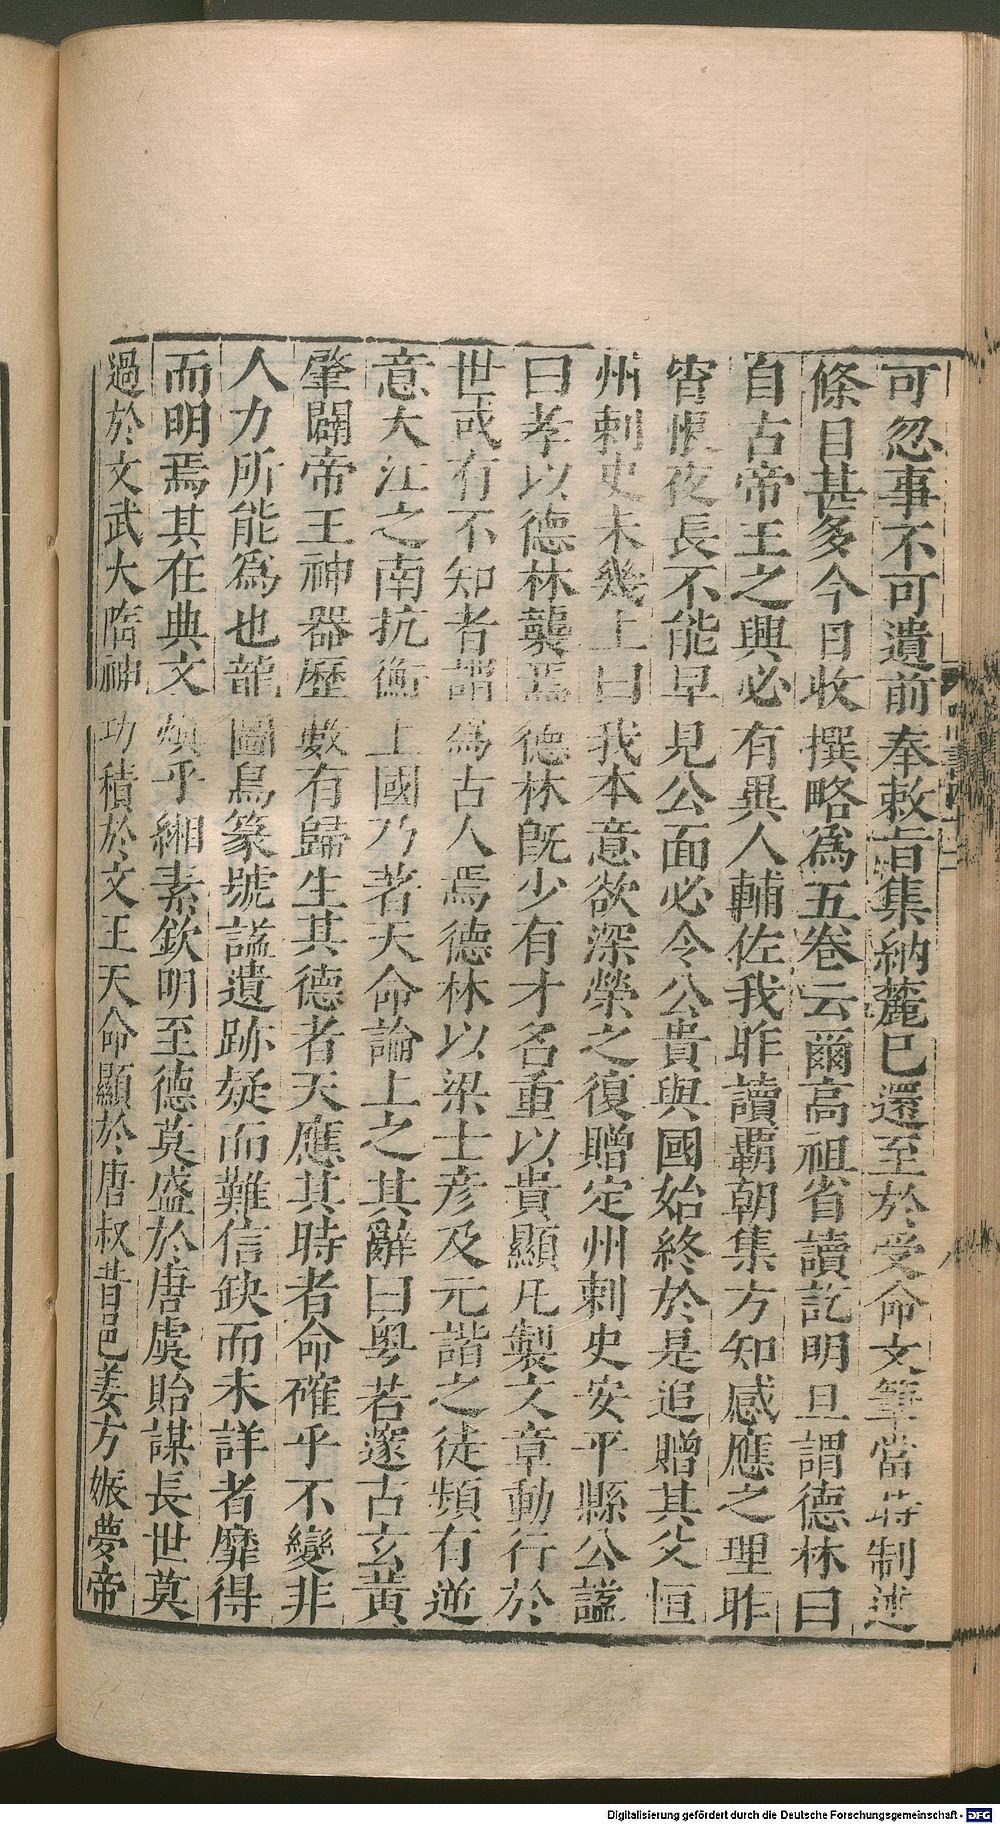 可忽事不可遺前奉敕旨集納麓已還至於受命文筆當時制述
條目甚多今日收撰略爲五卷云爾高祖省讀訖明旦謂德林曰
自古帝王之興必有異人輔佐我昨讀霸朝集方知感應之理昨
宵恨夜長不能早見公面必令公貴與國始終於是追贈其父恒
州刺史未幾上曰我本意欲深榮之復贈定州刺史安平縣公謚
曰孝以德林襲焉德林旣少有才名重以貴顯凡製文章動行於
世或有不知者謂爲古人焉德林以梁士彦及元諧之徒頻有逆
意大江之南抗衡上國乃著天命論上之其辭曰粤若邃古玄黃
肇闢帝王神器歷數有歸生其德者天應其時者命確乎不變非
人力所能爲也龍圖鳥篆號謚遺跡疑而難信缺而未詳者靡得
而明焉其在典文煥乎緗素欽明至德莫盛於唐虞貽謀長世莫
過於文武大隋神功積於文王天命顯於唐叔昔邑姜方娠夢帝
Digitalisierung gefördert durch die Deutsche Forschungsgemeinschaft - DFG